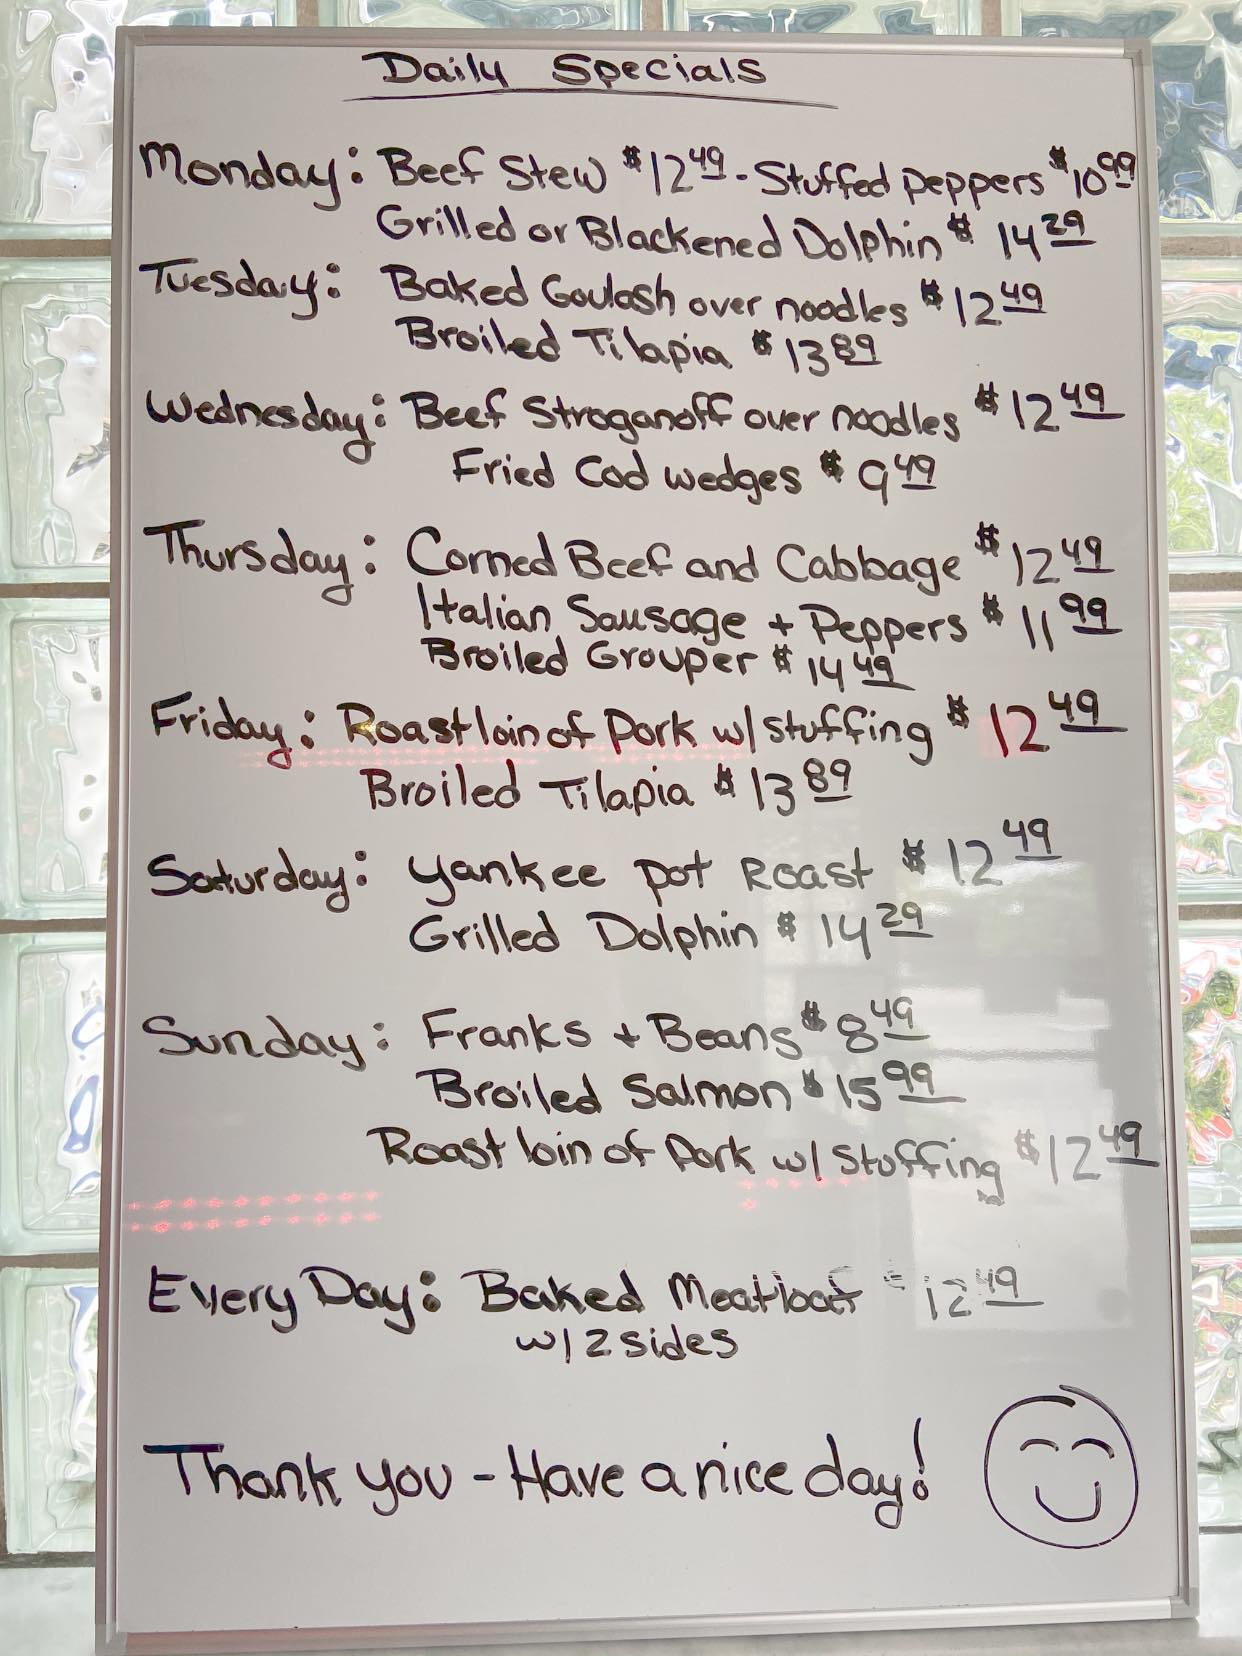 Daily Specials
Monday: Beef Stew $12 49 - Stuffed peppers $10 99
Grilled or Blackened Dolphin $ 14 29
Tuesday: Baked Goulash over noodles $12 49
Broiled Tilapia $13 89
Wednesday: Beef Stroganoff over noodles $12 49
Fried Cod wedges $ 9 49
Thursday: Corned Beef and Cabbage $12 49
Italian Sausage + Peppers $ 11 99
Broiled Grouper $ 14 49
Friday: Roast loin of Pork w/ stuffing $12 49
Broiled Tilapia $13 89
Saturday: Yankee pot Roast $12 49
Grilled Dolphin $ 14 29
Sunday: Franks + Beans $ 8 49
Broiled Salmon $15 99
Roast loin of Pork w/ Stuffing $12 49
Every Day: Baked Meatloaf $12 49
w/ 2 sides
Thank you - Have a nice day!